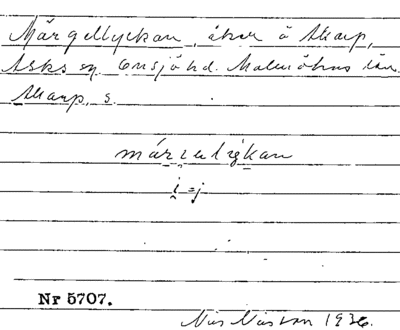 Märgellyckan, åker å Åkarp,
Asks sn Onsjö hd. Malmöhus län
Åkarp, s.
märi̯ɛliᶎkan
i̯ = j
Nr 5707.
Nils Nilsson 1936.